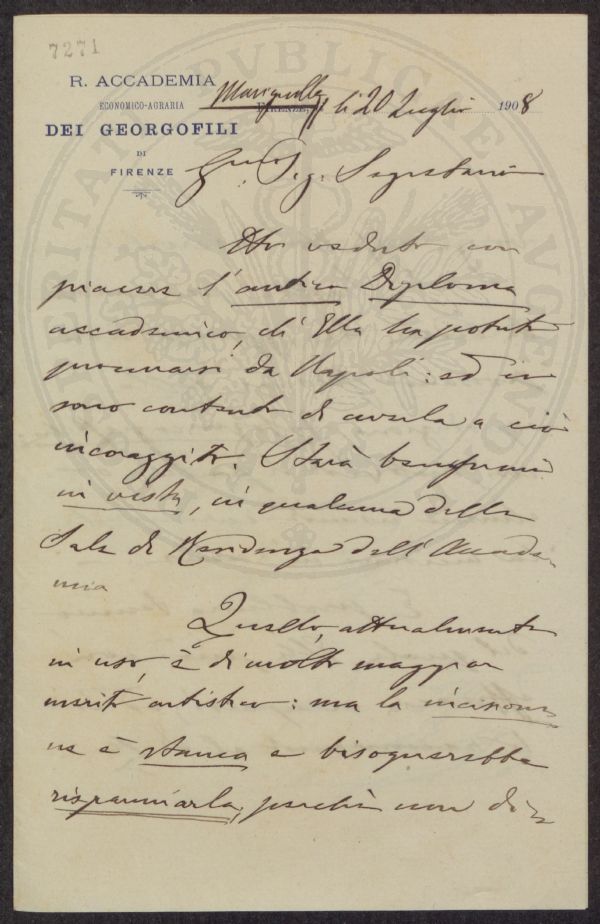 7271
R. ACCADEMIA
ECONOMICO-AGRARIA
DEI GEORGOFILI
DI
FIRENZE
Marignolle
FIRENZE, li 20 Luglio 1908
Sig. Segretario
Ho veduto con
piacere l'antico Diploma
accademico, che Ella ha potuto
procurarsi da Napoli: ed io
sono contento di averla a ciò
incoraggito. Starà benissimo
in vista, in qualcuna delle
Sale di Residenza dell'Accade-
mia
Quello, attualmente
in uso, è di molto maggior
merito artistico: ma la incisione
ne è stanca e bisognerebbe
risparmiarla, perchè non di